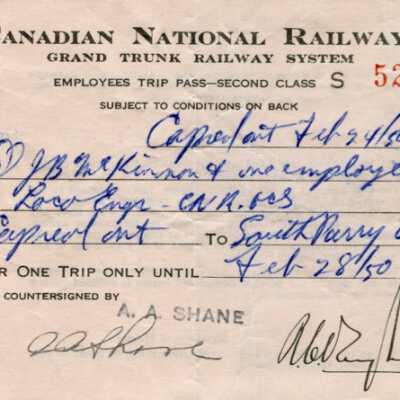 CANADIAN NATIONAL RAILWAY
GRAND TRUNK RAILWAY SYSTEM
EMPLOYEES TRIP PASS—SECOND CLASS S 52
SUBJECT TO CONDITIONS ON BACK
Capreol ont Feb 24/50
JB McKinnon & one employe
Loco Engr - CNR.
Capreol ont TO South Parry
R ONE TRIP ONLY UNTIL Feb 28/50
COUNTERSIGNED BY
A. A. SHANE
AAShane